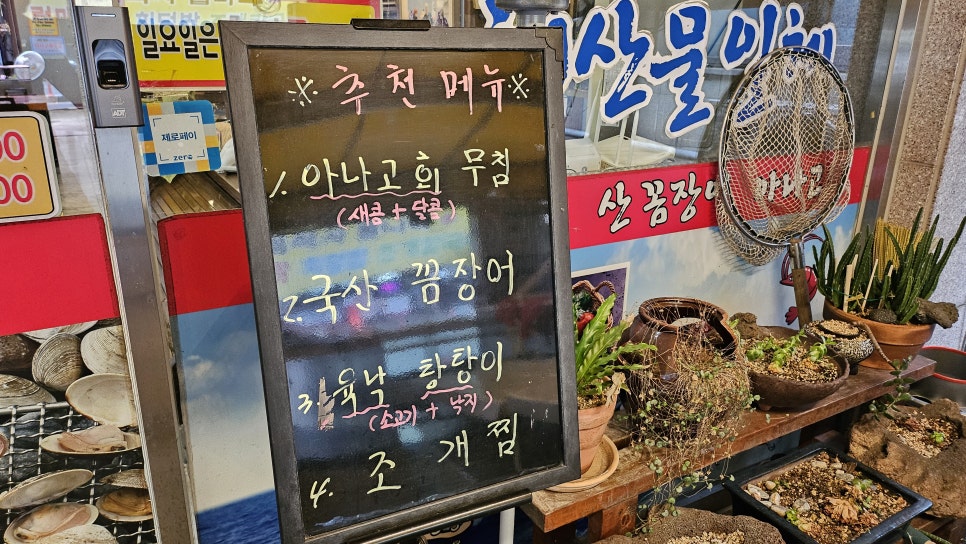 일요일은
ADT
제로페이
zero
00
00
※ 추천메뉴 ※
1. 아나고회 무침
(새콤 + 달콤)
2. 국산 꼼장어
3. 육낙 탕탕이
(소고기 + 낙지)
4. 조개찜
산물이
산 꼼장어 아나고